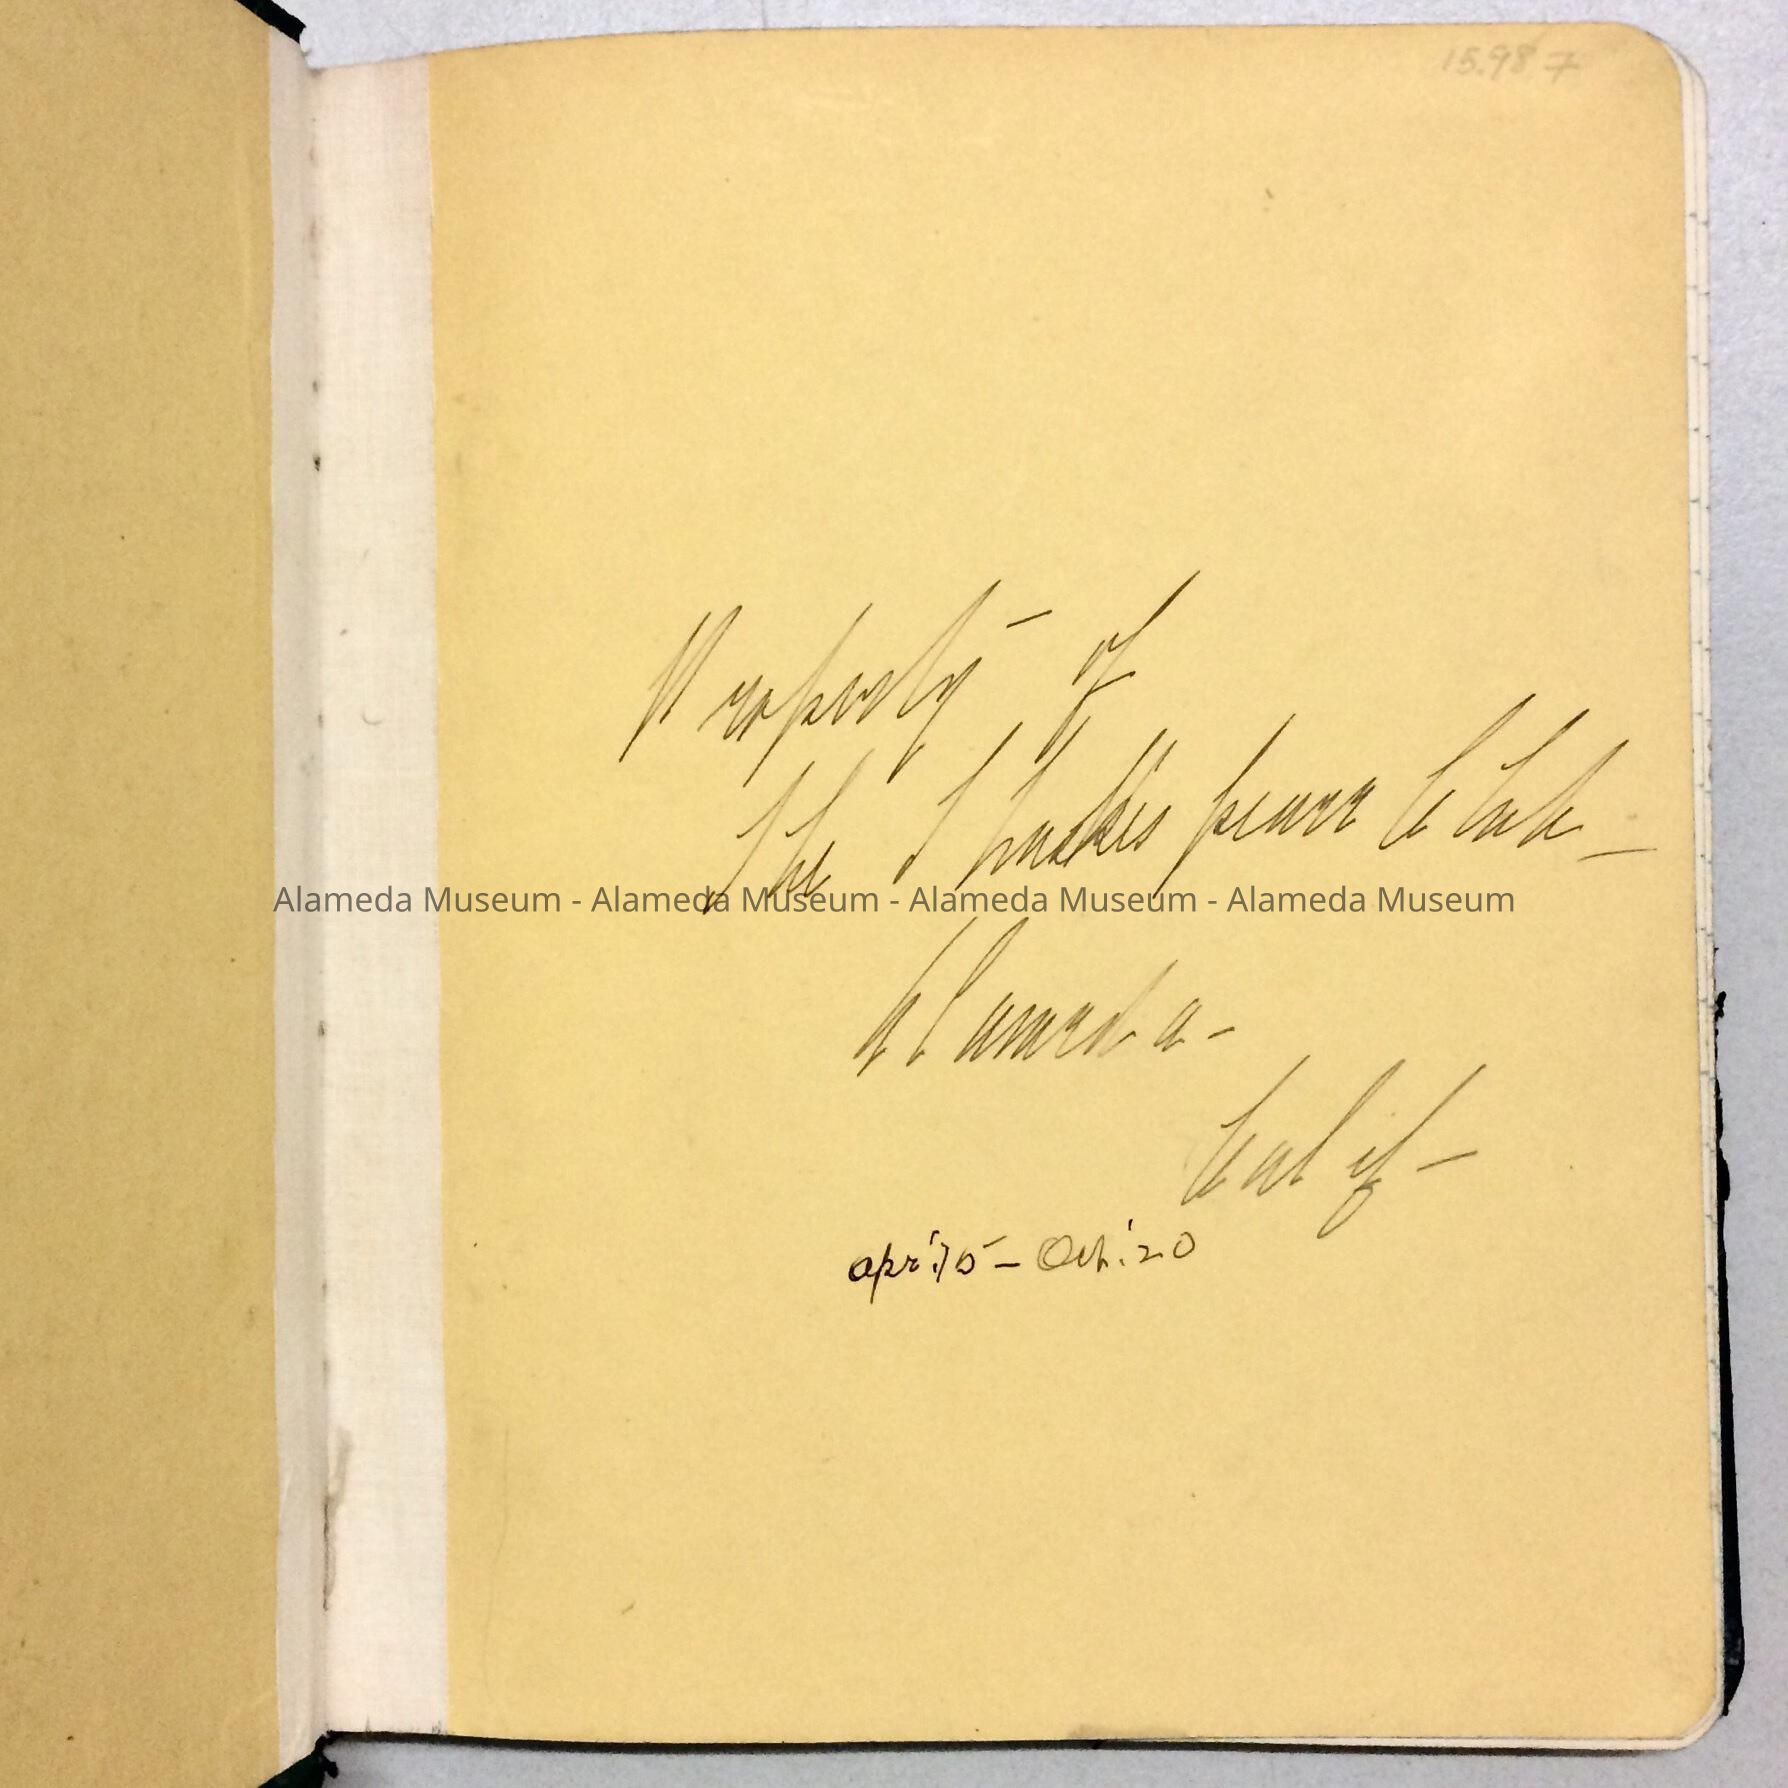 15.98 7
Property of
The Shakespeare Club -
Alameda Museum - Alameda Museum - Alameda Museum - Alameda Museum
Alameda -
Calif -
Apr. '15 - Oct. '20